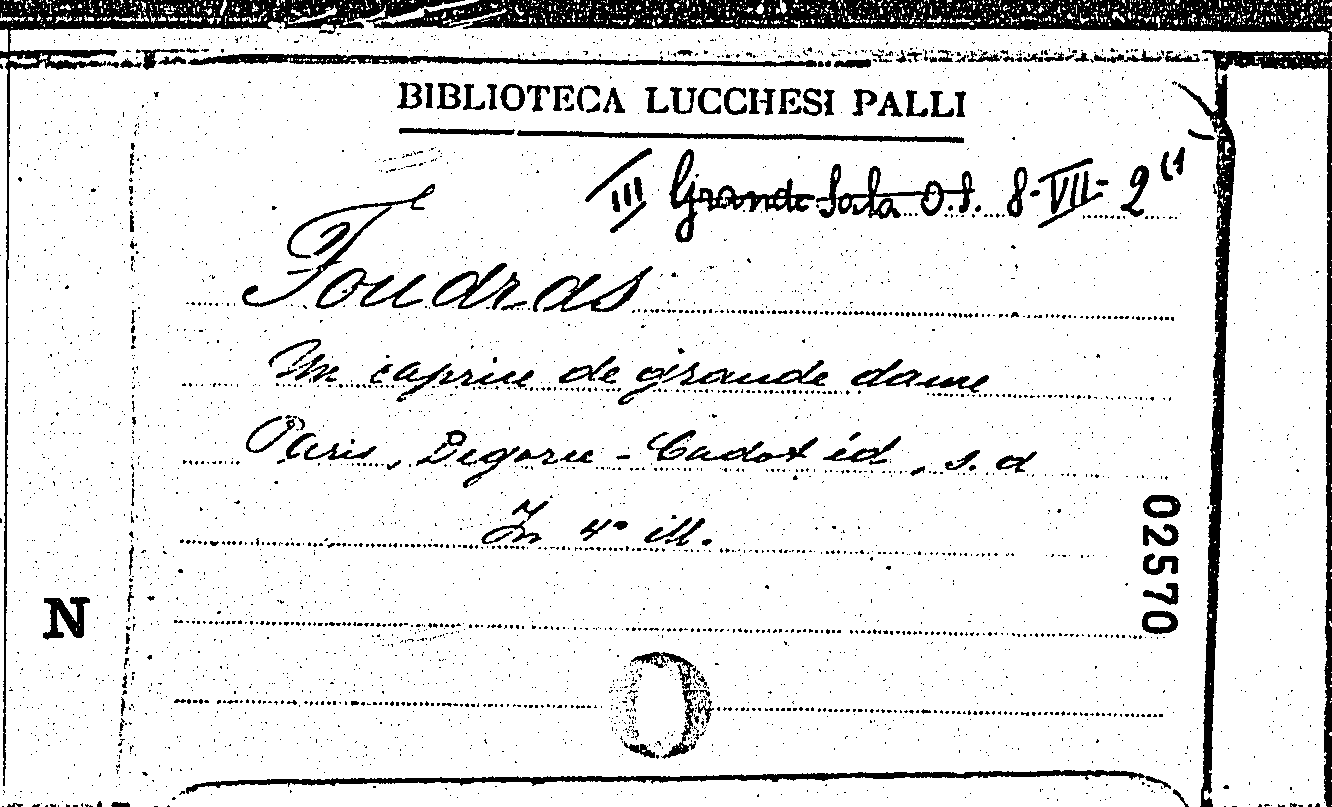 BIBLIOTECA LUCCHESI PALLI
III Grande Sala O.S. 8-VII-2
Foudras
Un caprice de grande dame
Paris, Degorce-Cadot éd, s. d
In 4° ill.
02570
N